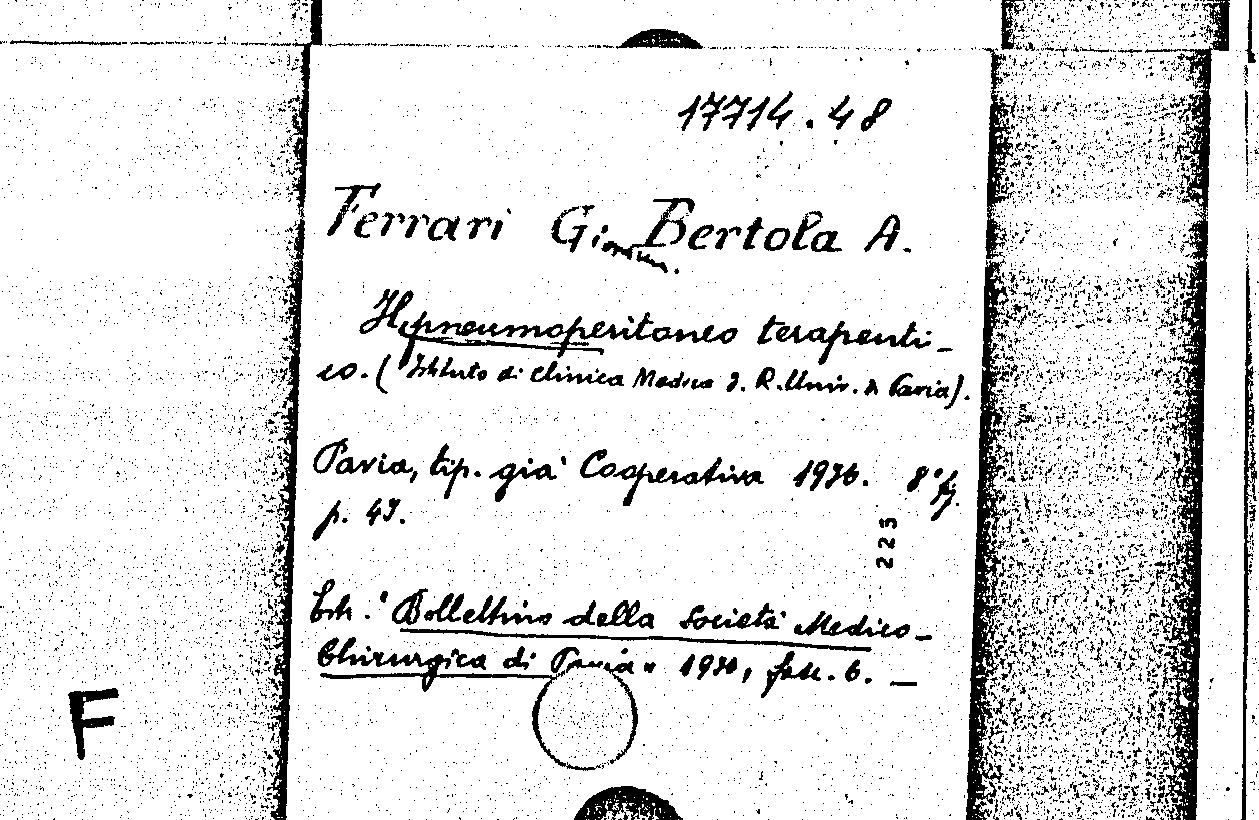 17714.48
Ferrari Giovanni. Bertola A.
Il pneumoperitoneo terapeuti-
co. (Istituto di Clinica Medica d. R. Univ. di Pavia).
Pavia, tip. già Cooperativa 1936. 8° fig.
p. 43.
225
Estr. "Bollettino della Società Medico-
Chirurgica di Pavia" 1936, fasc. 6. —
F